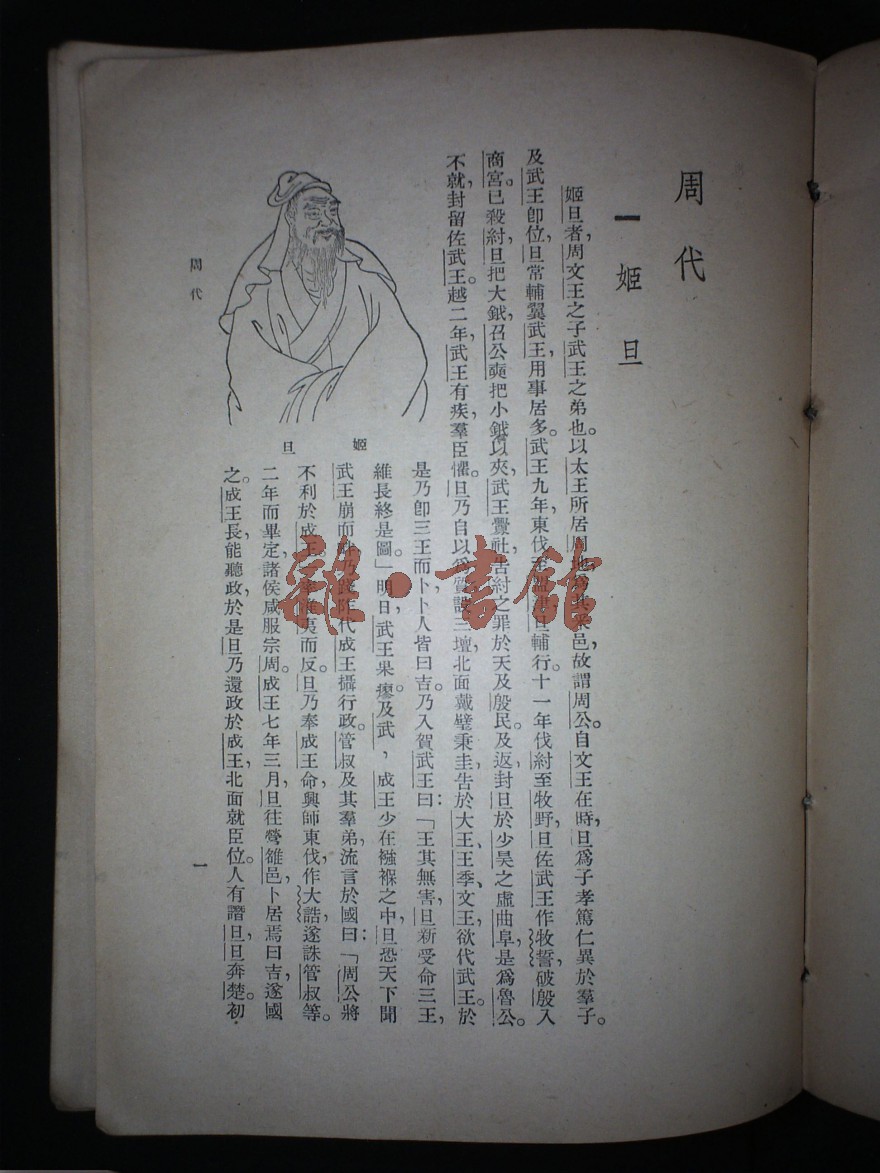 周代
一 姬旦
姬旦者，周文王之子武王之弟也。以太王所居周地爲其采邑，故謂周公。自文王在時，旦爲子孝篤仁異於羣子。
及武王卽位，旦常輔翼武王，用事居多。武王九年，東伐至盟津，旦輔行。十一年伐紂至牧野，旦佐武王作牧誓，破殷入
商宮。已殺紂，旦把大鉞，召公奭把小鉞以夾，武王釁社，告紂之罪於天及殷民。及返，封旦於少昊之虛曲阜，是爲魯公。
不就封，留佐武王。越二年，武王有疾，羣臣懼。旦乃自以爲質，設三壇，北面戴璧秉圭，吿於大王、王季、文王，欲代武王。於
是乃卽三王而卜，卜人皆曰吉，乃入賀武王曰：「王其無害，旦新受命三王，
維長終是圖。」明日，武王果瘳。及武，成王少在襁褓之中，旦恐天下聞
武王崩而畔，乃踐阼代成王攝行政。管叔及其羣弟，流言於國曰：「周公將
不利於成王，率淮夷而反。旦乃奉成王命，興師東伐，作大誥，遂誅管叔等。
二年而畢定，諸侯咸服宗周。成王七年三月，旦往營雒邑，卜居焉曰吉，遂國
之。成王長，能聽政，於是旦乃還政於成王，北面就臣位。人有譖旦，旦奔楚。初，
姬旦
周代
一
雜·書館